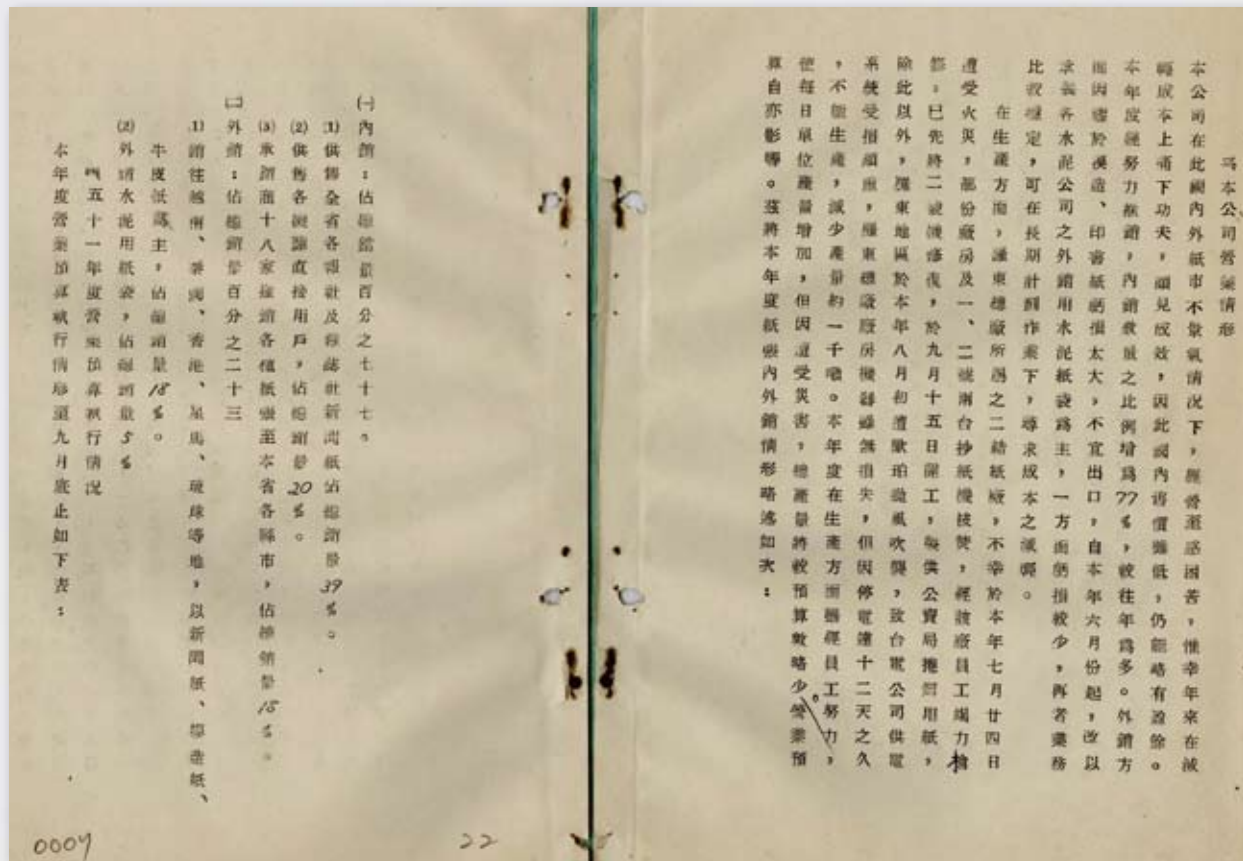 本公司營業情形
本公司在此國內外紙市不景氣情況下，經營至感困苦，惟幸年來在減
輕成本上痛下功夫，頗見成效，因此國內售價雖低，仍能略有盈餘。
本年度經努力推銷，內銷數量之比例增為77％，較往年為多。外銷方
面因鑑於模造、印書紙虧損太大，不宜出口，自本年六月份起，改以
承製各水泥公司之外銷用水泥紙袋為主，一方面虧損較少，再者業務
比較穩定，可在長期計劃作業下，尋求成本之減輕。
在生產方面，羅東總廠所屬之二結紙廠，不幸於本年七月廿四日
遭受火災，部份廠房及一、二號兩台抄紙機被焚，經該廠員工竭力搶
修，已先將二號機修復，於九月十五日開工，專供公賣局捲菸用紙，
除此以外，羅東地區於本年八月初遭歐珀颱風吹襲，致台電公司供電
系統受損頗重，羅東總廠廠房機器雖無損失，但因停電達十二天之久
，不能生產，減少產量約一千噸。本年度在生產方面雖經員工努力，
使每日單位產量增加，但因遭受災害，總產量將較預算數略少。營業預
算自亦影響。茲將本年度紙張內外銷情形略述如次：
㈠內銷：佔總銷量百分之七十七。
(1)供售全省各報社及雜誌社新聞紙佔總銷量39％。
(2)供售各機關直接用戶，佔總銷量20％。
(3)承銷商十八家推銷各種紙張至本省各縣市，佔總銷量18％。
㈡外銷：佔總銷量百分之二十三
(1)銷往越南、泰國、香港、星馬、琉球等地，以新聞紙、模造紙、
牛皮紙為主，佔總銷量18％。
(2)外銷水泥用紙袋，佔總銷量5％
四五十一年度營業預算執行情況
本年度營業預算執行情形至九月底止如下表：
22
0009